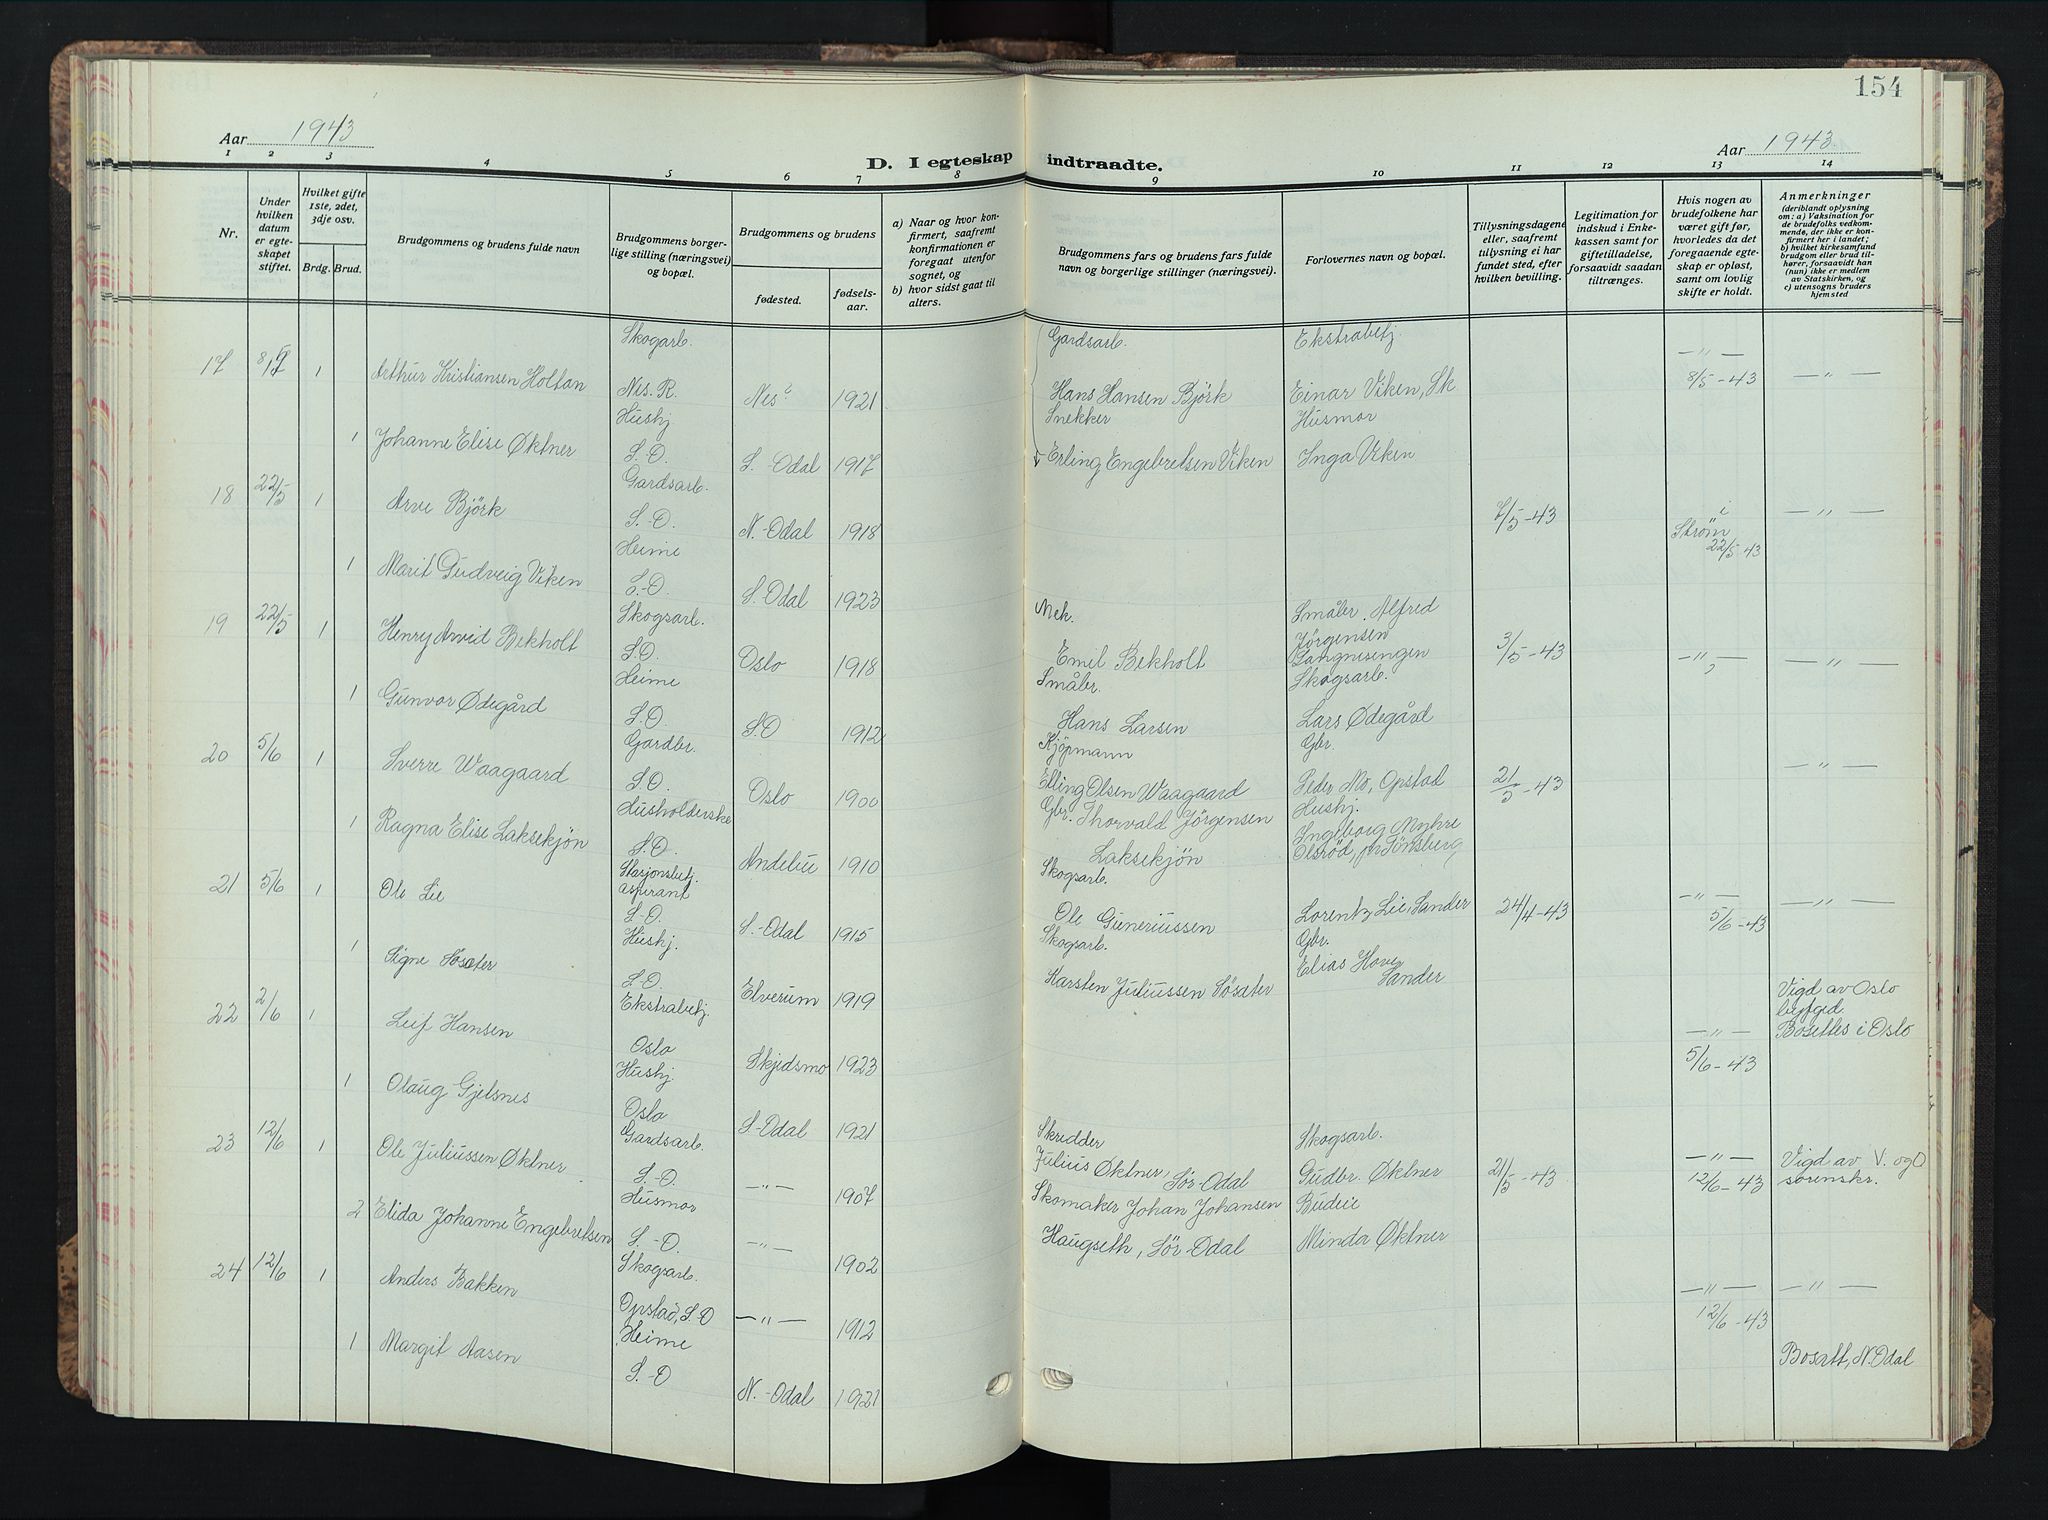 154
Aar 1943
Aar 1943
D. I egteskap indtraadte.
1 2 3 4 5 6 7 8 9 10 11 12 13 14
Nr.
Under hvilken datum er egteskapet stiftet.
Hvilket gifte 1ste, 2det, 3dje osv.
Brdg. Brud.
Brudgommens og brudens fulde navn
Brudgommens borgerlige stilling (næringsvei) og bopæl.
Brudgommens og brudens
fødested.
fødselsaar.
a) Naar og hvor konfirmert, saafremt konfirmationen er foregaat utenfor sognet, og
b) hvor sidst gaat til alters.
Brudgommens fars og brudens fars fulde navn og borgerlige stillinger (næringsvei).
Forlovernes navn og bopæl.
Tillysningsdagene eller, saafremt tillysning ei har fundet sted, efter hvilken bevilling.
Legitimation for indskud i Enkekassen samt for giftetilladelse, forsaavidt saadan tiltrænges.
Hvis nogen av brudefolkene har været gift før, hvorledes da det foregaaende egteskap er opløst, samt om lovlig skifte er holdt.
Anmerkninger
(deriblandt oplysning om: a) Vaksination for de brudefolks vedkommende, der ikke er konfirmert her i landet; b) hvilket kirkesamfund brudgom eller brud tilhører, forsaavidt han (hun) ikke er medlem av Statskirken, og c) utensogns bruders hjemsted
17 8/5 1 Arthur Kristiansen Holtan Skogarb. Nes. R. Nes 1921 — " — 8/5-43 — " —
1 Johanne Elise Øktner Hushj S.-O. S.-Odal 1917
18 22/5 1 Arve Björk Gardsarb. S.-O. N.-Odal 1918 Gardsarb. Hans Hansen Björk Ekstrabetj. Einar Viken, Sk 7/5-43 i Strøm 22/5-43 — " —
1 Marit Gudveig Viken Heime S.-O. S.Odal 1923 Snekker Erling Engebretsen Viken Husmor Inga Viken
19 22/5 1 Henry Arvid Bekholt Skogsarb. S.O. Oslo 1918 Mek. Emil Bekholt Småbr. Alfred Jørgensen Langnesengen 3/5-43 — " — — " —
1 Gunvor Ødegård Heime S.O. S.O 1912 Småbr. Hans Larsen Skogsarb. Lars Ødegård
20 5/6 1 Sverre Waagaard Gardbr. S.O. Oslo 1900 Kjöpmann Elling Olsen Waagaard Gbr. Peder Mo, Opstad 21/5-43 — " —
1 Ragna Elise Laksekjøn Husholderske S.O. Andebu 1910 Gbr. Thorvald Jørgensen Laksekjøn Hushj. Ingeborg Myhre Olsrød, pr Tönsberg
21 5/6 1 Ole Lie Stasjonsbetj. aspirant S.-O. S.-Odal 1915 Skogsarb. Ole Guneriussen Lorentz Lie, Sander 24/4-43 — " — 5/6-43 — " —
1 Signe Søsæter Hushj. S.O. Elverum 1919 Skogsarb. Karsten Juliussen Søsæter Gbr. Elias Hove Sander
22 2/6 1 Leif Hansen Ekstrabetj. Oslo Skjedsmo 1923 — " — 5/6-43 Vigd av Oslo byfgd. Bosettes i Oslo
1 Olaug Gjelsnes Hushj. Oslo S.-Odal 1921
23 12/6 1 Ole Juliussen Øktner Gardsarb. S.-O. — " — 1907 Skredder Julius Øktner, Sør-Odal Skogsarb. Gudbr. Øktner 21/5-43 — " — 12/6-43 Vigd av V. og O sorenskr.
2 Elida Johanne Engebretsen Husmor S.-O. — " — 1902 Skomaker Johan Johansen Haugseth, Sør-Odal Budeie Minda Øktner
24 12/6 1 Anders Bakken Skogsarb. Opstad, S.O — " — 1912 — " — 12/6-43 — " —
1 Margit Aasen Heime S.-O N.-Odal 1921 Bosatt, N.Odal